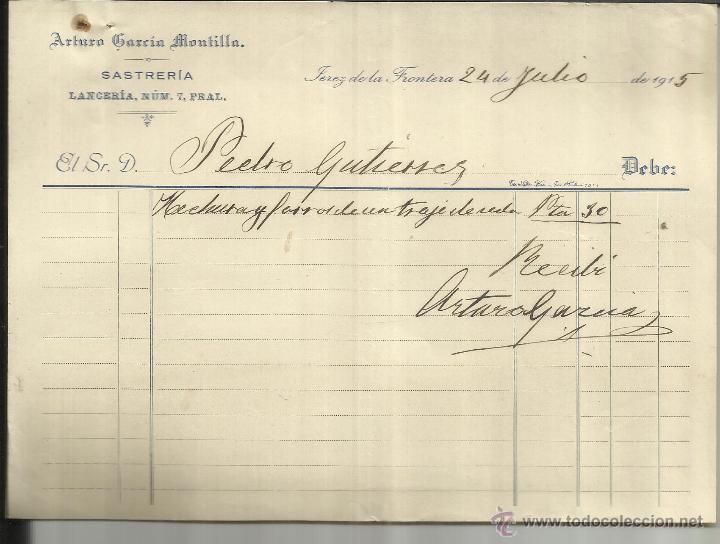 Arturo García Montilla.
SASTRERÍA
LANCERÍA, NÚM. 7, PRAL.
Jerez de la Frontera 24 de Julio de 1915
El Sr. D. Pedro Gutierrez Debe:
Hechura y forros de un traje de seda Pta 30
Recibí
Arturo Garcia
© www.todocoleccion.net